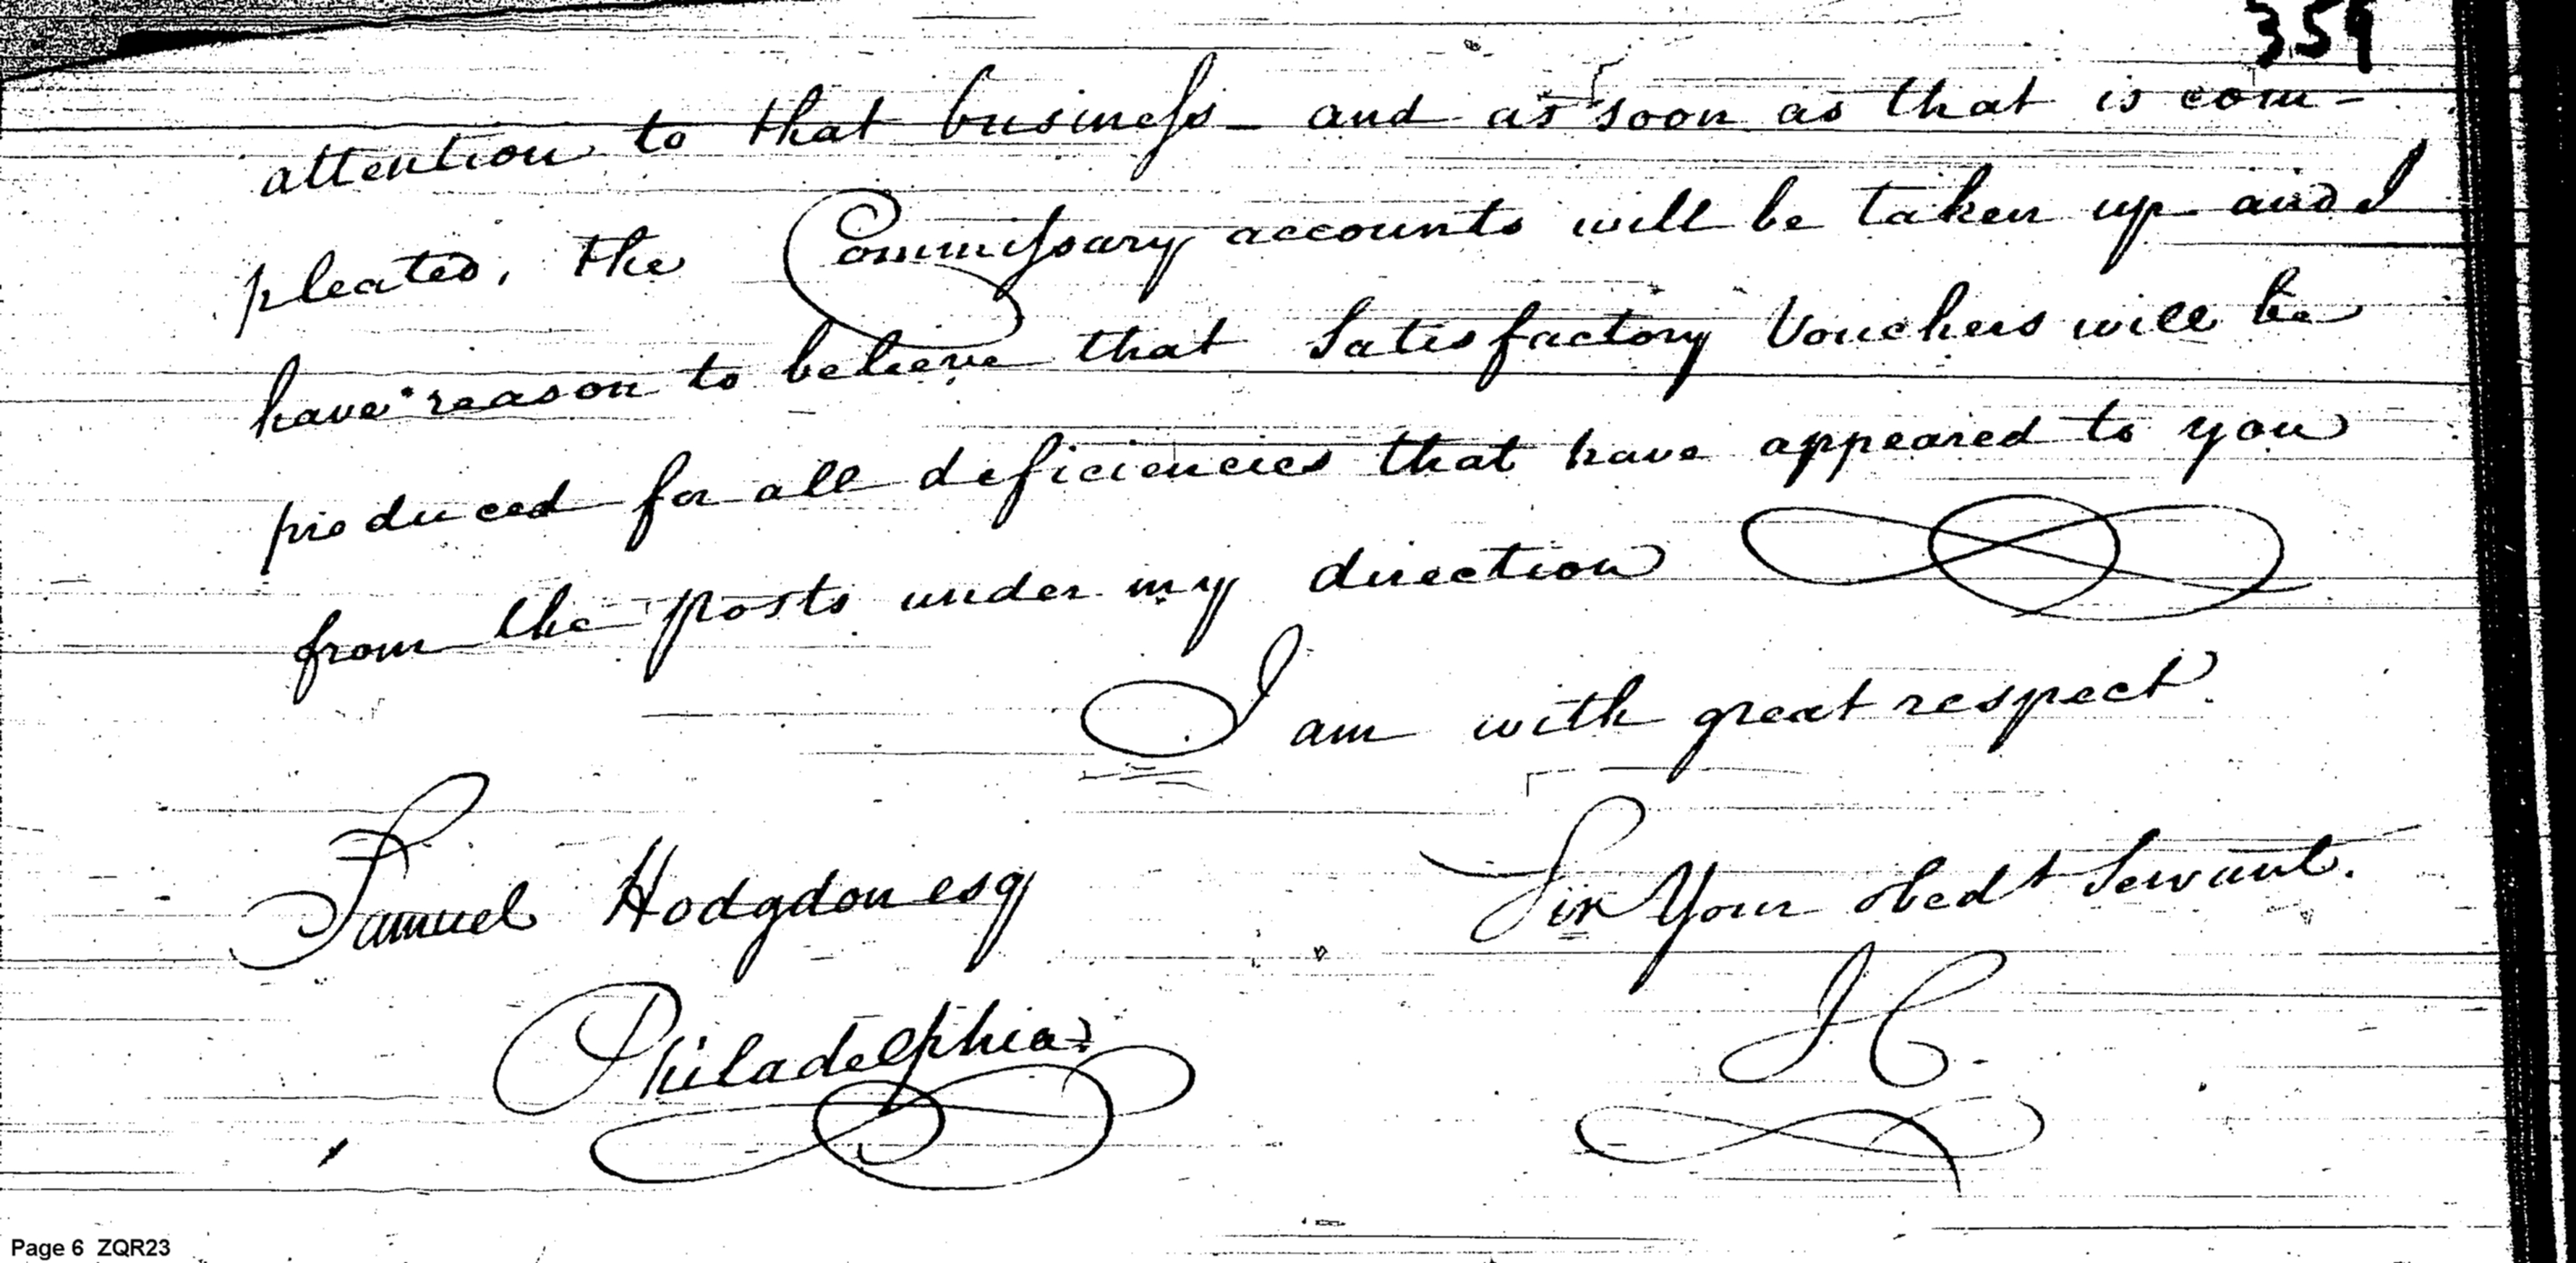 359
attention to that business – and as soon as that is com-
pleated, the Commissary accounts will be taken up and I
have reason to believe that Satisfactory Vouchers will be
produced for all deficiencies that have appeared to you
from the posts under my direction
I am with great respect.
Sir Your obedt Servant.
Samuel Hodgdon esq
Philadelphia
J C.
Page 6 ZQR23